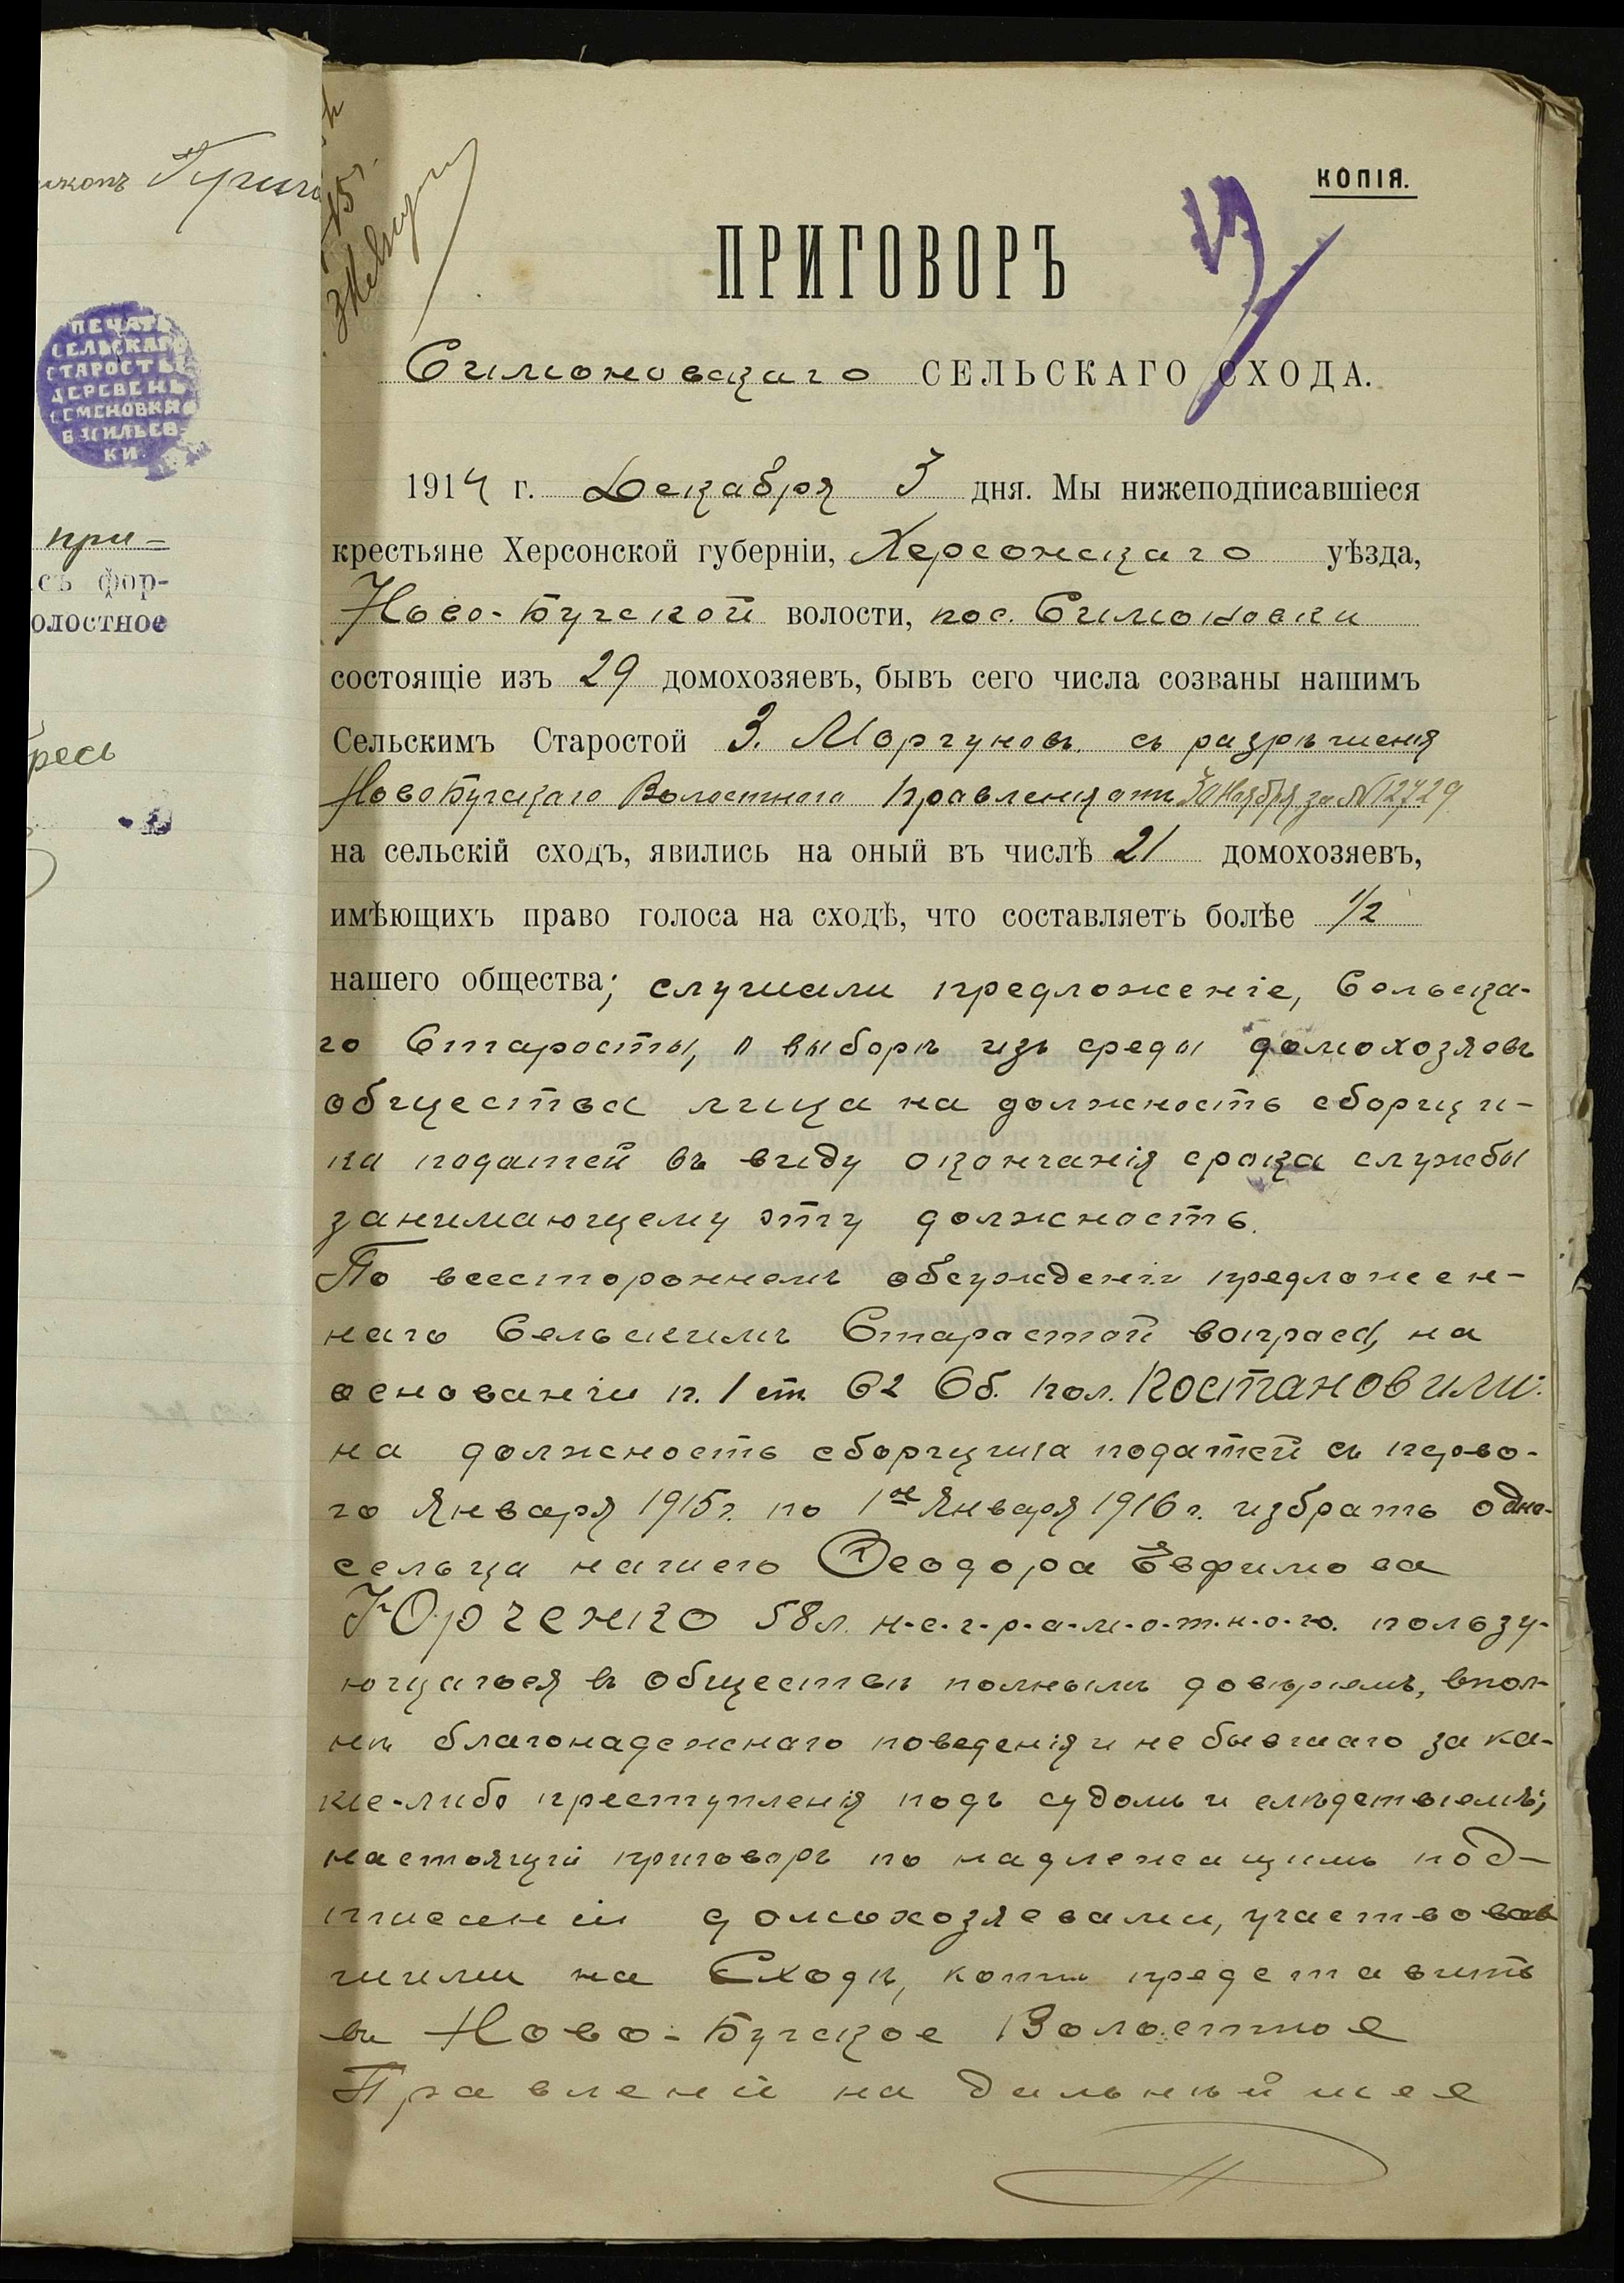 Григи
ПЕЧАТЬ
СЕЛЬСКАГО
СТАРОСТЫ
ДЕРЕВЕНЬ
СЕМЕНОВКИ
ВАСИЛЬЕВ-
КИ.
при-
съ фор-
олостное
КОПІЯ.
ПРИГОВОРЪ
Симоновскаго СЕЛЬСКАГО СХОДА.
1914 г. Декабря 3 дня. Мы нижеподписавшіеся
крестьяне Херсонской губерніи, Херсонскаго уѣзда,
Ново-Бугской волости, пос. Симоновки
состоящіе изъ 29 домохозяевъ, бывъ сего числа созваны нашимъ
Сельскимъ Старостой З. Моргуновъ съ разрѣшенія
Ново Бугскаго Волостного Правленія отъ 30 Ноября за № 12729
на сельскій сходъ, явились на оный въ числѣ 21 домохозяевъ,
имѣющихъ право голоса на сходѣ, что составляетъ болѣе 1/2
нашего общества; слушали предложеніе, Сельска-
го Старосты, о выборѣ изъ среды домохозяевъ
общества лица на должность сборщи-
ка податей въ виду окончанія срока службы
занимающему эту должность.
По всестороннемъ обсужденіи предложен-
наго Сельскимъ Старостой вопроса, на
основаніи п. 1 ст 62 Об. пол. Постановили:
на должность сборщика податей съ перво-
го Января 1915 г. по 1ое Января 1916 г. избрать одно-
сельца нашего Ѳеодора Евфимова
Юрченко 58 л. н-е-г-р-а-м-о-т-н-о-го. пользу-
ющагося въ обществѣ полнымъ довѣріемъ, впол-
нѣ благонадежнаго поведенія и не бывшаго за ка-
кіе-либо преступленія подъ судомъ и слѣдствіемъ;
настоящій приговоръ по надлежащимъ под-
писаніи домохозяевами, участвовав
шими на Сходѣ, копію представить
въ Ново-Бугское Волостное
Правленіе на дальнѣйшее